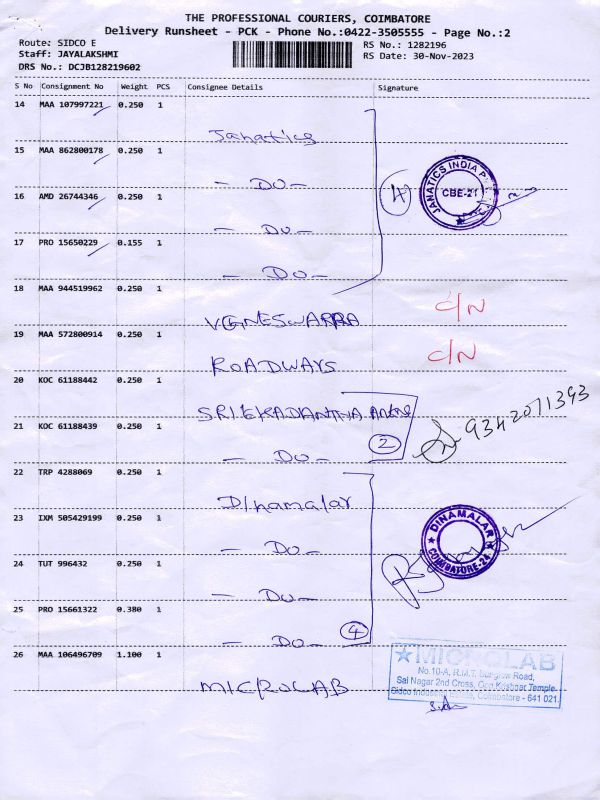 THE PROFESSIONAL COURIERS, COIMBATORE
Delivery Runsheet - PCK - Phone No.:0422-3505555 - Page No.:2
Route: SIDCO E
RS No.: 1282196
Staff: JAYALAKSHMI
RS Date: 30-Nov-2023
DRS No.: DCJB128219602
S No Consignment No Weight PCS Consignee Details Signature
14 MAA 107997221 0.250 1
Janatics
15 MAA 862800178 0.250 1
- DO -
16 AMD 26744346 0.250 1
- DO -
17 PRO 15650229 0.155 1
- DO -
4
JANATICS INDIA P
CBE-21
18 MAA 944519962 0.250 1
VGNESWARRA
C/N
19 MAA 572800914 0.250 1
ROADWAYS
C/N
20 KOC 61188442 0.250 1
SRI EKADANTHA
21 KOC 61188439 0.250 1
- DO -
2
9342071393
22 TRP 4288069 0.250 1
Dinamalar
23 IXM 505429199 0.250 1
- DO -
24 TUT 996432 0.250 1
- DO -
25 PRO 15661322 0.380 1
- DO -
4
DINAMALAR
COIMBATORE-24
26 MAA 106496709 1.100 1
MICROLAB
MICROLAB
No.10-A, R.M.T. Bungalow Road,
Sai Nagar 2nd Cross, Opp. Temple
Sidco Industrial Estate, Coimbatore - 641 021.